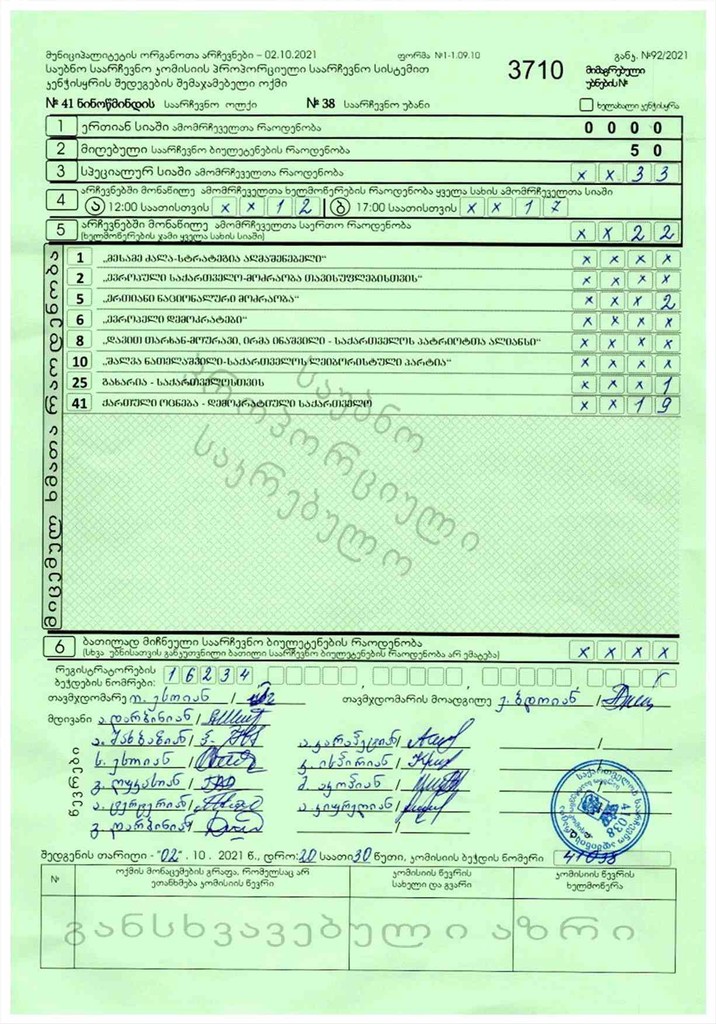 მუნიციპალიტეტის ორგანოთა არჩევნები – 02.10.2021 ფორმა №1-1.09.10 განკ. №92/2021
საუბნო საარჩევნო კომისიის პროპორციული საარჩევნო სისტემით 3710 მიმაგრებული
კენჭისყრის შედეგების შემაჯამებელი ოქმი უბნების №
№ 41 ნინოწმინდის საარჩევნო ოლქი № 38 საარჩევნო უბანი ხელახალი კენჭისყრა
1 ერთიან სიაში ამომრჩეველთა რაოდენობა 0 0 0 0
2 მიღებული საარჩევნო ბიულეტენების რაოდენობა 5 0
3 სპეციალურ სიაში ამომრჩეველთა რაოდენობა x x 3 3
4 არჩევნებში მონაწილე ამომრჩეველთა ხელმოწერების რაოდენობა ყველა სახის ამომრჩეველთა სიაში
ა 12:00 საათისთვის x x 1 2 ბ 17:00 საათისთვის x x 1 7
5 არჩევნებში მონაწილე ამომრჩეველთა საერთო რაოდენობა x x 2 2
(ხელმოწერების ჯამი ყველა სახის სიაში)
მიცემულ ხმათა რაოდენობა
1 „მესამე ძალა-სტრატეგია აღმაშენებელი“ x x x x
2 „ევროპული საქართველო-მოძრაობა თავისუფლებისთვის“ x x x x
5 „ერთიანი ნაციონალური მოძრაობა“ x x x 2
6 „ევროპელი დემოკრატები“ x x x x
8 „დავით თარხან-მოურავი, ირმა ინაშვილი - საქართველოს პატრიოტთა ალიანსი“ x x x x
10 „შალვა ნათელაშვილი-საქართველოს ლეიბორისტული პარტია“ x x x x
25 გახარია - საქართველოსთვის x x x 1
41 ქართული ოცნება - დემოკრატიული საქართველო x x 1 9
საუბნო
პროპორციული
საკრებულო
6 ბათილად მიჩნეული საარჩევნო ბიულეტენების რაოდენობა x x x x
(სხვა უბნისათვის განკუთვნილი ბათილი საარჩევნო ბიულეტენების რაოდენობა არ ემატება)
რეგისტრატორების
ბეჭდების ნომრები: 1 6 2 3 4
თავმჯდომარე ესოიან / თავმჯდომარის მოადგილე /
მდივანი ა. დარბინიან /
წევრები
ა. შახბაზიან / ა. კარაპეტიან /
ს. ესოიან / /
/ მ. აკოფიან /
/ /
გ. დარბინიან /
შედგენის თარიღი - "02" . 10 . 2021 წ., დრო: 20 საათი 30 წუთი, კომისიის ბეჭდის ნომერი 41038
№ ოქმის მონაცემების გრაფა, რომელსაც არ კომისიის წევრის კომისიის წევრის
ეთანხმება კომისიის წევრი სახელი და გვარი ხელმოწერა
განსხვავებული აზრი